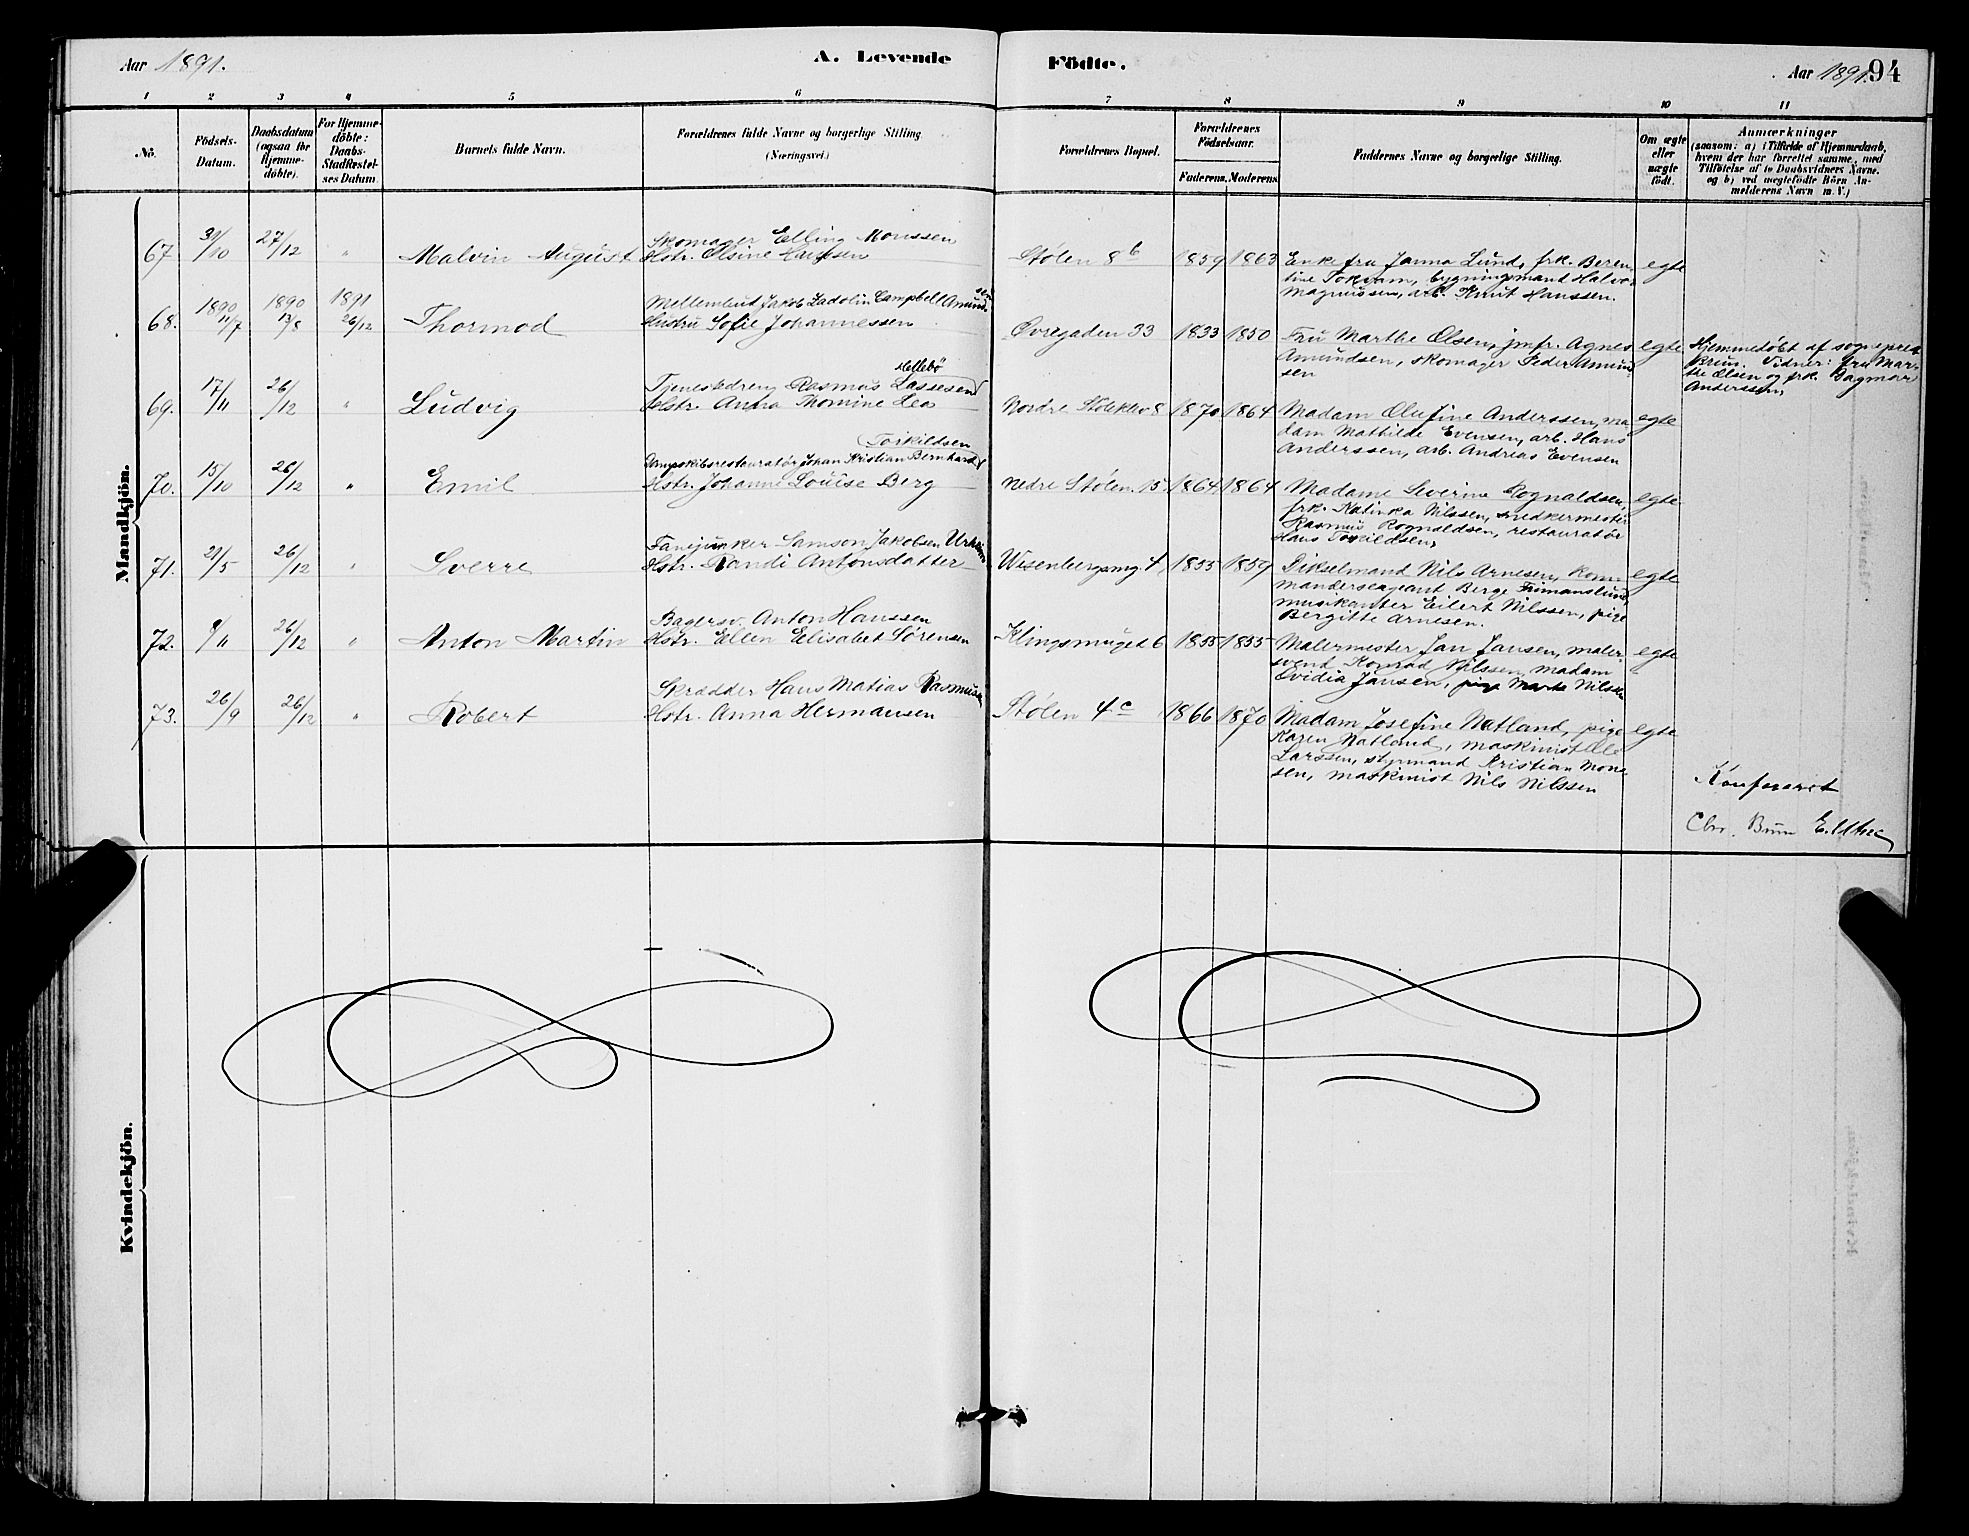 Aar 1891.
A. Levende Födte.
Aar 1891. 94
1 2 3 4 5 6 7 8 9 10 11
No.
Födsels-
Datum.
Daabsdatum
(ogsaa for
Hjemme-
döbte).
For Hjemme-
döbte:
Daabs-
Stadfæstel-
ses Datum.
Barnets fulde Navn.
Forældrenes fulde Navne og borgerlige Stilling
(Næringsvei.)
Forældrenes Bopæl.
Forældrenes
Födselsaar.
Faderens. Moderens.
Faddernes Navne og borgerlige Stilling.
Om ægte
eller
uægte
födt.
Anmærkninger
(saasom: a) i Tilfælde af Hjemmedaab,
hvem der har forrettet samme, med
Tilföielse af to Daabsvidners Navne.
og b) ved uægtefödte Börn An-
melderens Navn m. V.)
Mandkjön.
67 31/10 27/12 " Malvin August
Skomager Elling Monssen
Hstr. Olsine Hanssen
Stølen 8b 1859 1863
Enkefru Janna Lund, frk. Beren-
tine Tokvam, bygningsmand Halvor
Magnussen, arb. Knut Hanssen.
egte
68. 1890 11/7 1890 13/8 1891 26/12 Thormod
Mellembud Jakob Ladolin Campbell Amund-
sen
Hustru Sofie Johannessen
Øvregaden 33 1833 1850
Fru Marthe Olsen, jmfr. Agnes
Amundsen, skomager Peder Amund-
sen
egte
Hjemmedøbt af sogneprest
Brun. Vidner: fru Mar-
the Olsen og frk. Dagmar
Anderssen.
69. 17/11 26/12 " Ludvig
Mellebö
Tjenestedreng Rasmus Lassesen
Hstr. Anna Thomine Lea
Nordre Støleklev 8 1870 1864
Madam Olufine Anderssen, ma-
dam Mathilde Evensen, arb. Hans
Anderssen, arb. Andreas Evensen
egte
70. 15/10 26/12 " Emil
Torkildsen
Dampskibsrestauratør Johan Kristian Bernhard
Hstr. Johanne Louise Berg
Nedre Stølen 15 1864 1864
Madame Severine Rognaldsen,
frk. Katinka Nilssen, snedkermester
Rasmus Rognaldsen, restauratør
Hans Torkildsen,
egte
71. 21/5 26/12 " Sverre
Fanejunker Samson Jakobsen
Hstr. Randi Antonsdatter
Wesenbergsmg. 4 1855 1859
Dikselmand Nils Arnesen, kom-
mandersergeant Berge Frimanslund,
musikanter Eilert Nilssen, pige
Bergitte Arnesen.
egte
72. 9/11 26/12 " Anton Martin
Bagersv. Anton Hanssen
Hstr. Ellen Elisabet Sørensen
Klingsmuget 6 1855 1855
Malermester Jan Jansen, maler-
svend Konrad Nilssen, madam
Ovidia Jansen, pige Marta Nilssen
egte
73. 26/9 26/12 " Robert
Skrædder Hans Matias Rasmussen
Hstr. Anna Hermansen
Stølen 4c 1866 1870
Madam Josefine Natland, pige
Karen Natland, maskinist Ole
Larssen, styrmand Kristian Mons-
sen, maskinist Nils Nilssen
egte
Konfereret
Chr. Brun
Kvindekjön.